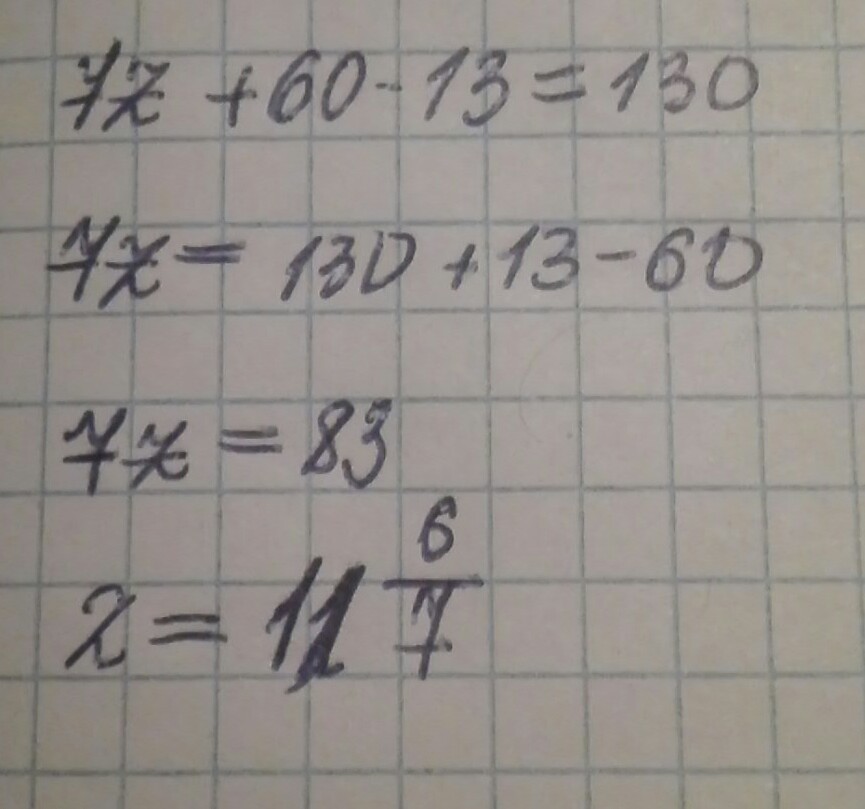 7z + 60 - 13 = 130
7z = 130 + 13 - 60
7z = 83
z = 11 6/7